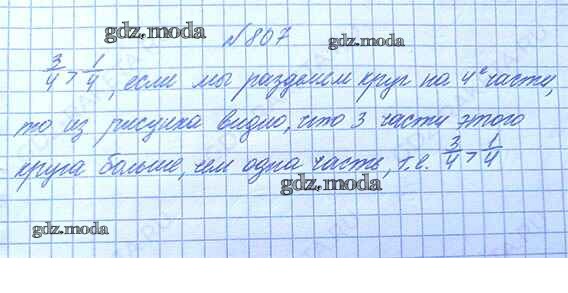 gdz.moda
№807
gdz.moda
3/4 > 1/4, если мы разделим круг на 4 части,
то из рисунка видно, что 3 части этого
круга больше, чем одна часть, т.е. 3/4 > 1/4
gdz.moda
gdz.moda